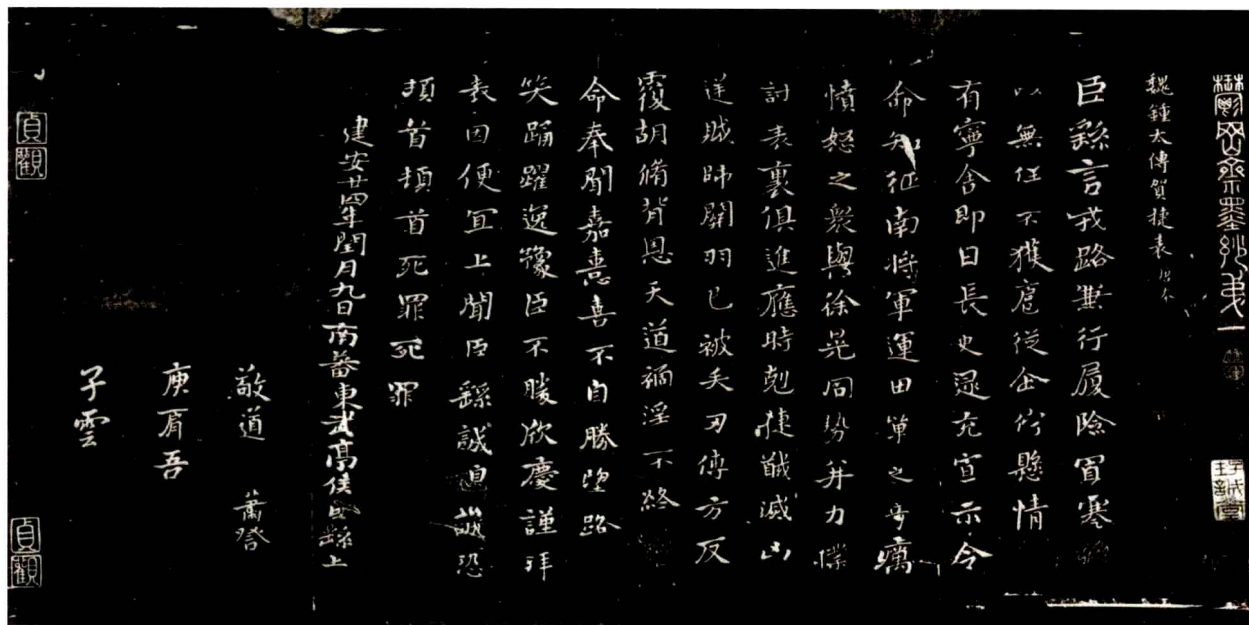 鬱岡齋墨妙第一
魏鍾太傅賀捷表
臣繇言戎路兼行履險冒寒臣繇
以無任不獲扈從企佇懸情
有寧舍即日長史逯充宣示令
命知征南將軍運田單之奇厲
憤怒之衆與徐晃同勢并力撲
討表裏俱進應時剋捷馘滅凶
逆賊帥關羽已被矢刃傅方反
覆胡脩背恩天道禍淫不終
命奉聞嘉憙喜不自勝望路
笑踊躍逸豫臣不勝欣慶謹拜
表因便宜上聞臣繇誠惶誠恐
頓首頓首死罪死罪
建安廿四年閏月九日南蕃東武亭侯臣繇上
敬道
蕭登
庾肩吾
子雲
貞觀
貞觀